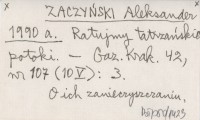 ZACZYŃSKI Aleksander
1990 a. Ratujmy tatrzańskie
potoki. — Gaz. Krak. 42,
nr 107 (10 V): 3.
O ich zanieczyszczaniu.